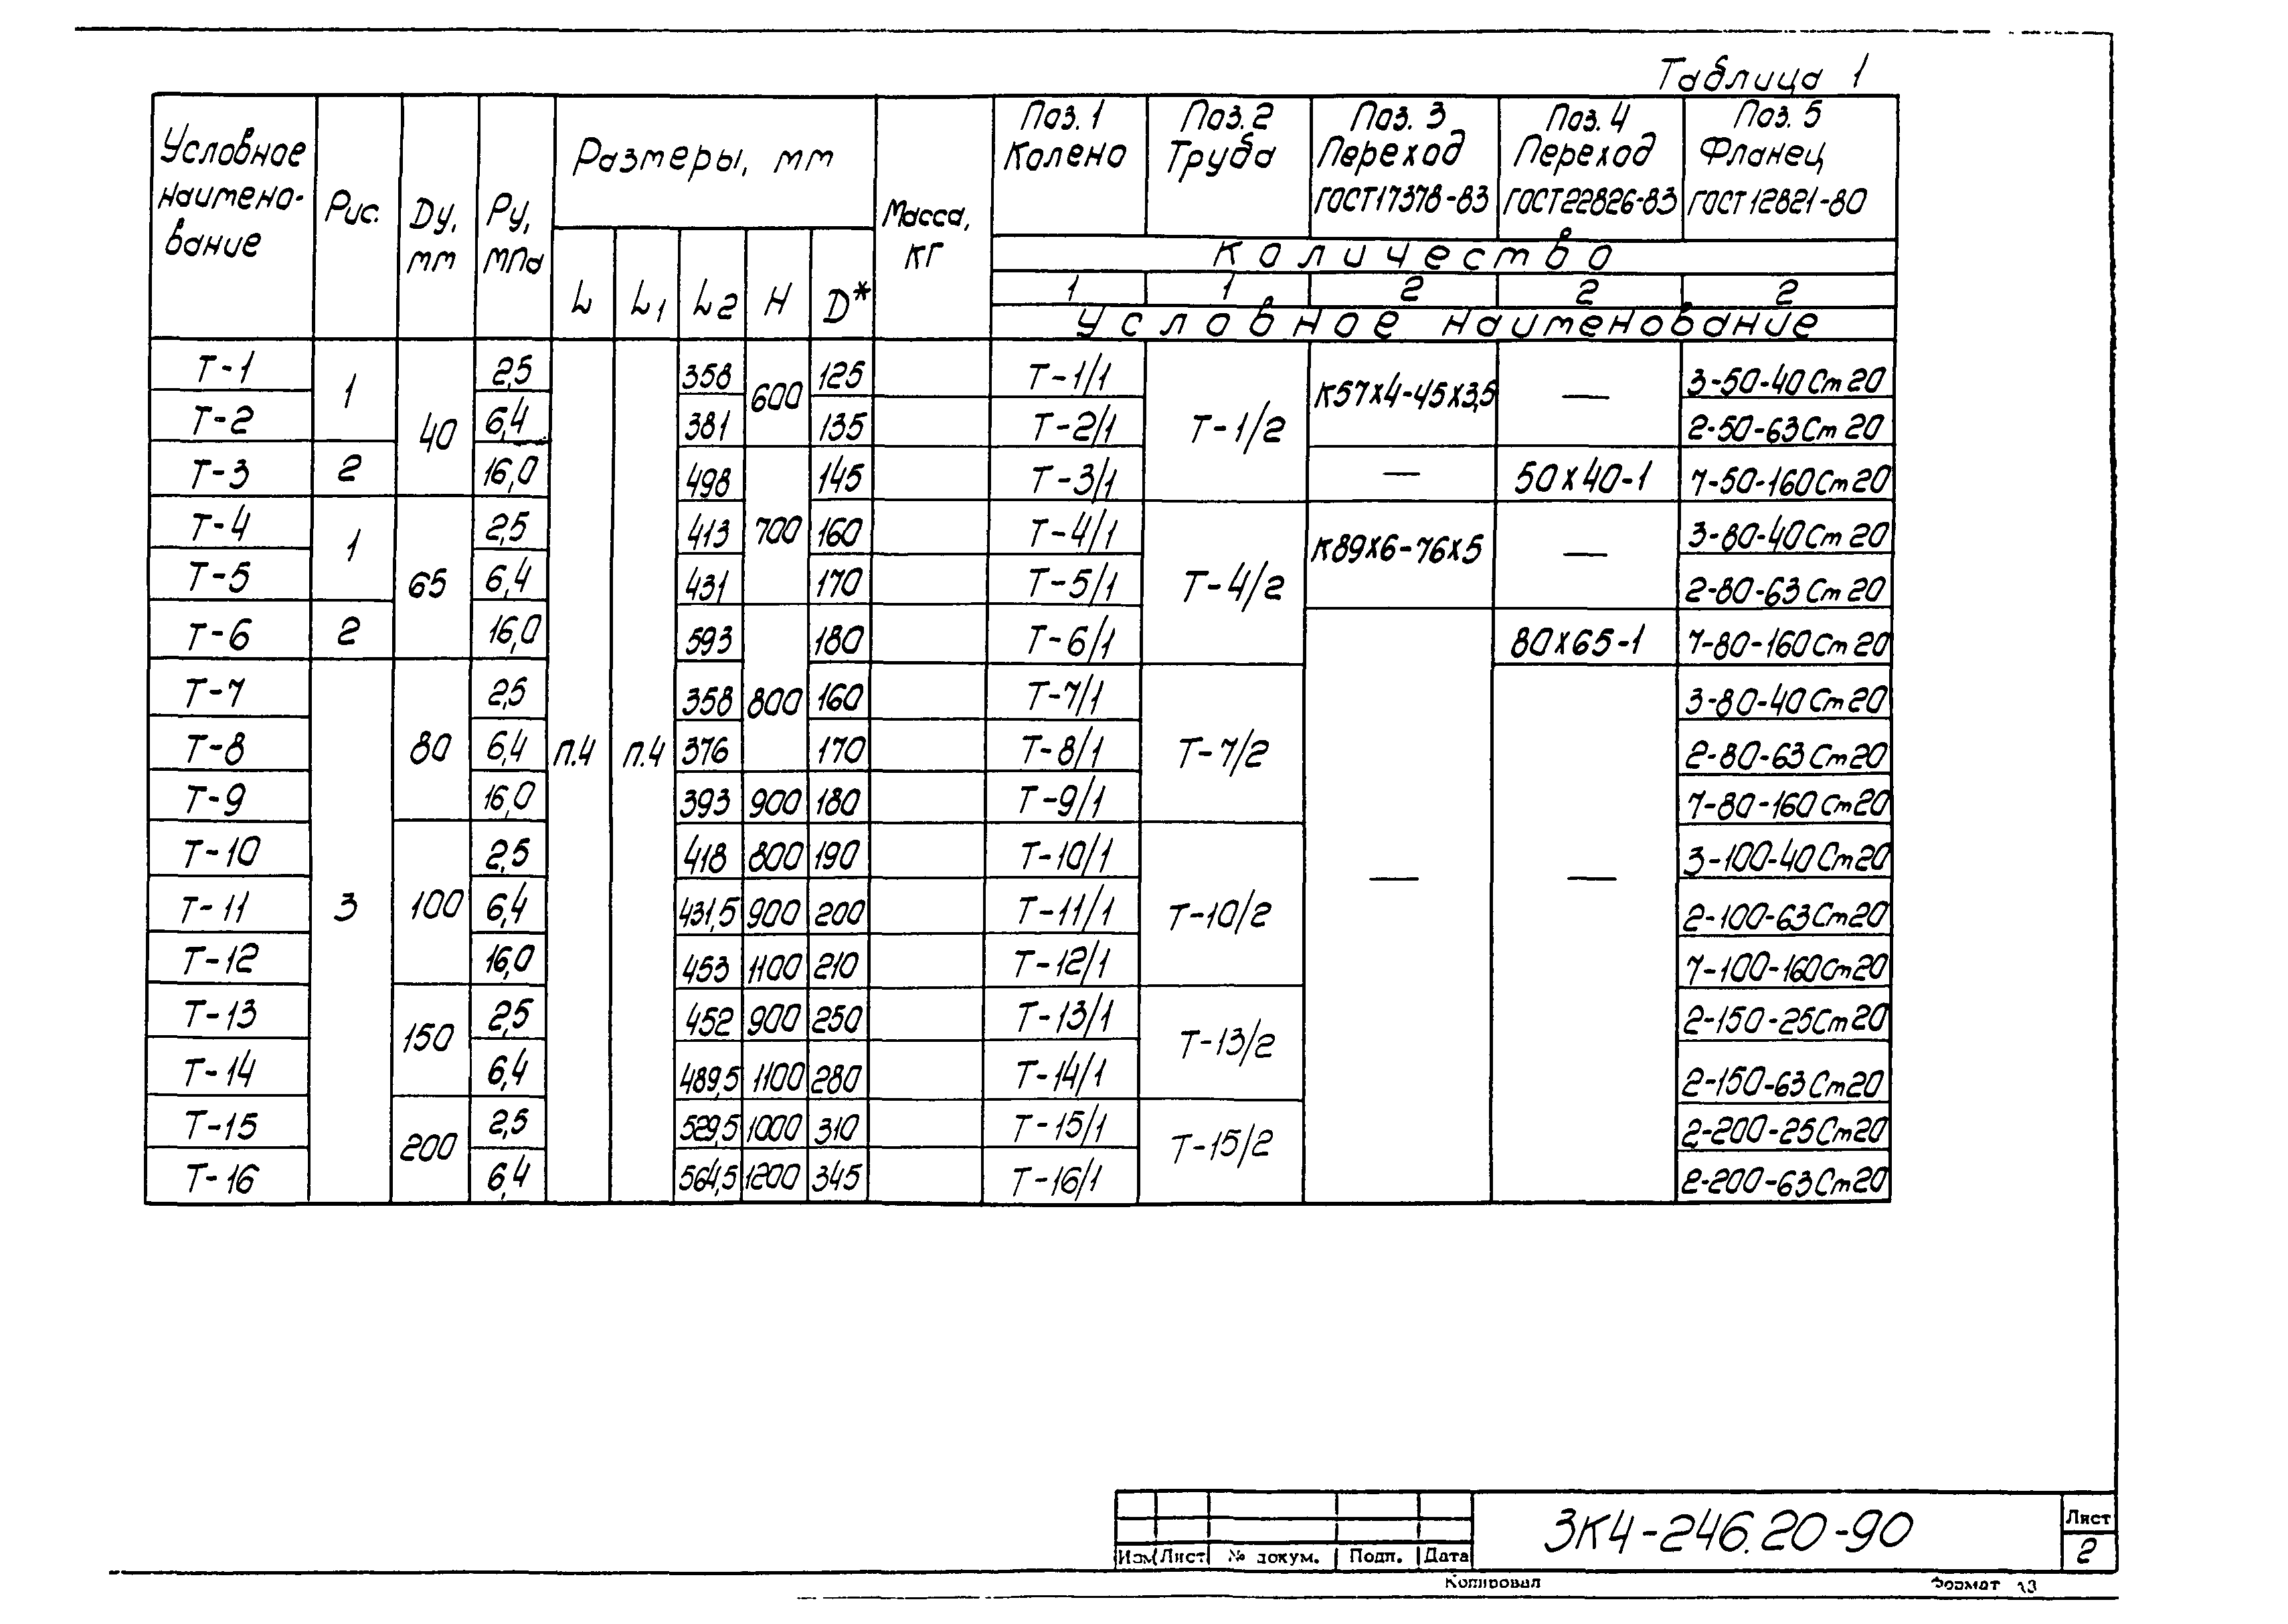 Таблица 1
Условное наимено-вание Рис. Dу, мм Ру, МПа Размеры, мм Масса, кг Поз. 1 Колено Поз. 2 Труба Поз. 3 Переход ГОСТ 17378-83 Поз. 4 Переход ГОСТ 22826-83 Поз. 5 Фланец ГОСТ 12821-80
Количество
L L1 L2 H D* 1 1 2 2 2
Условное наименование
Т-1 1 40 2,5 п.4 п.4 358 600 125 Т-1/1 Т-1/2 К57х4-45х3,5 — 3-50-40 Ст 20
Т-2 6,4 381 135 Т-2/1 2-50-63 Ст 20
Т-3 2 16,0 498 700 145 Т-3/1 — 50х40-1 7-50-160 Ст 20
Т-4 1 65 2,5 413 160 Т-4/1 Т-4/2 К89х6-76х5 — 3-80-40 Ст 20
Т-5 6,4 431 170 Т-5/1 2-80-63 Ст 20
Т-6 2 16,0 593 800 180 Т-6/1 — 80х65-1 7-80-160 Ст 20
Т-7 3 80 2,5 358 160 Т-7/1 Т-7/2 — 3-80-40 Ст 20
Т-8 6,4 376 170 Т-8/1 2-80-63 Ст 20
Т-9 16,0 393 900 180 Т-9/1 7-80-160 Ст 20
Т-10 100 2,5 418 800 190 Т-10/1 Т-10/2 3-100-40 Ст 20
Т-11 6,4 431,5 900 200 Т-11/1 2-100-63 Ст 20
Т-12 16,0 453 1100 210 Т-12/1 7-100-160 Ст 20
Т-13 150 2,5 452 900 250 Т-13/1 Т-13/2 2-150-25 Ст 20
Т-14 6,4 489,5 1100 280 Т-14/1 2-150-63 Ст 20
Т-15 200 2,5 529,5 1000 310 Т-15/1 Т-15/2 2-200-25 Ст 20
Т-16 6,4 564,5 1200 345 Т-16/1 2-200-63 Ст 20
ЗК4-246.20-90
Лист
2
Изм Лист № докум. Подп. Дата
Копировал Формат А3